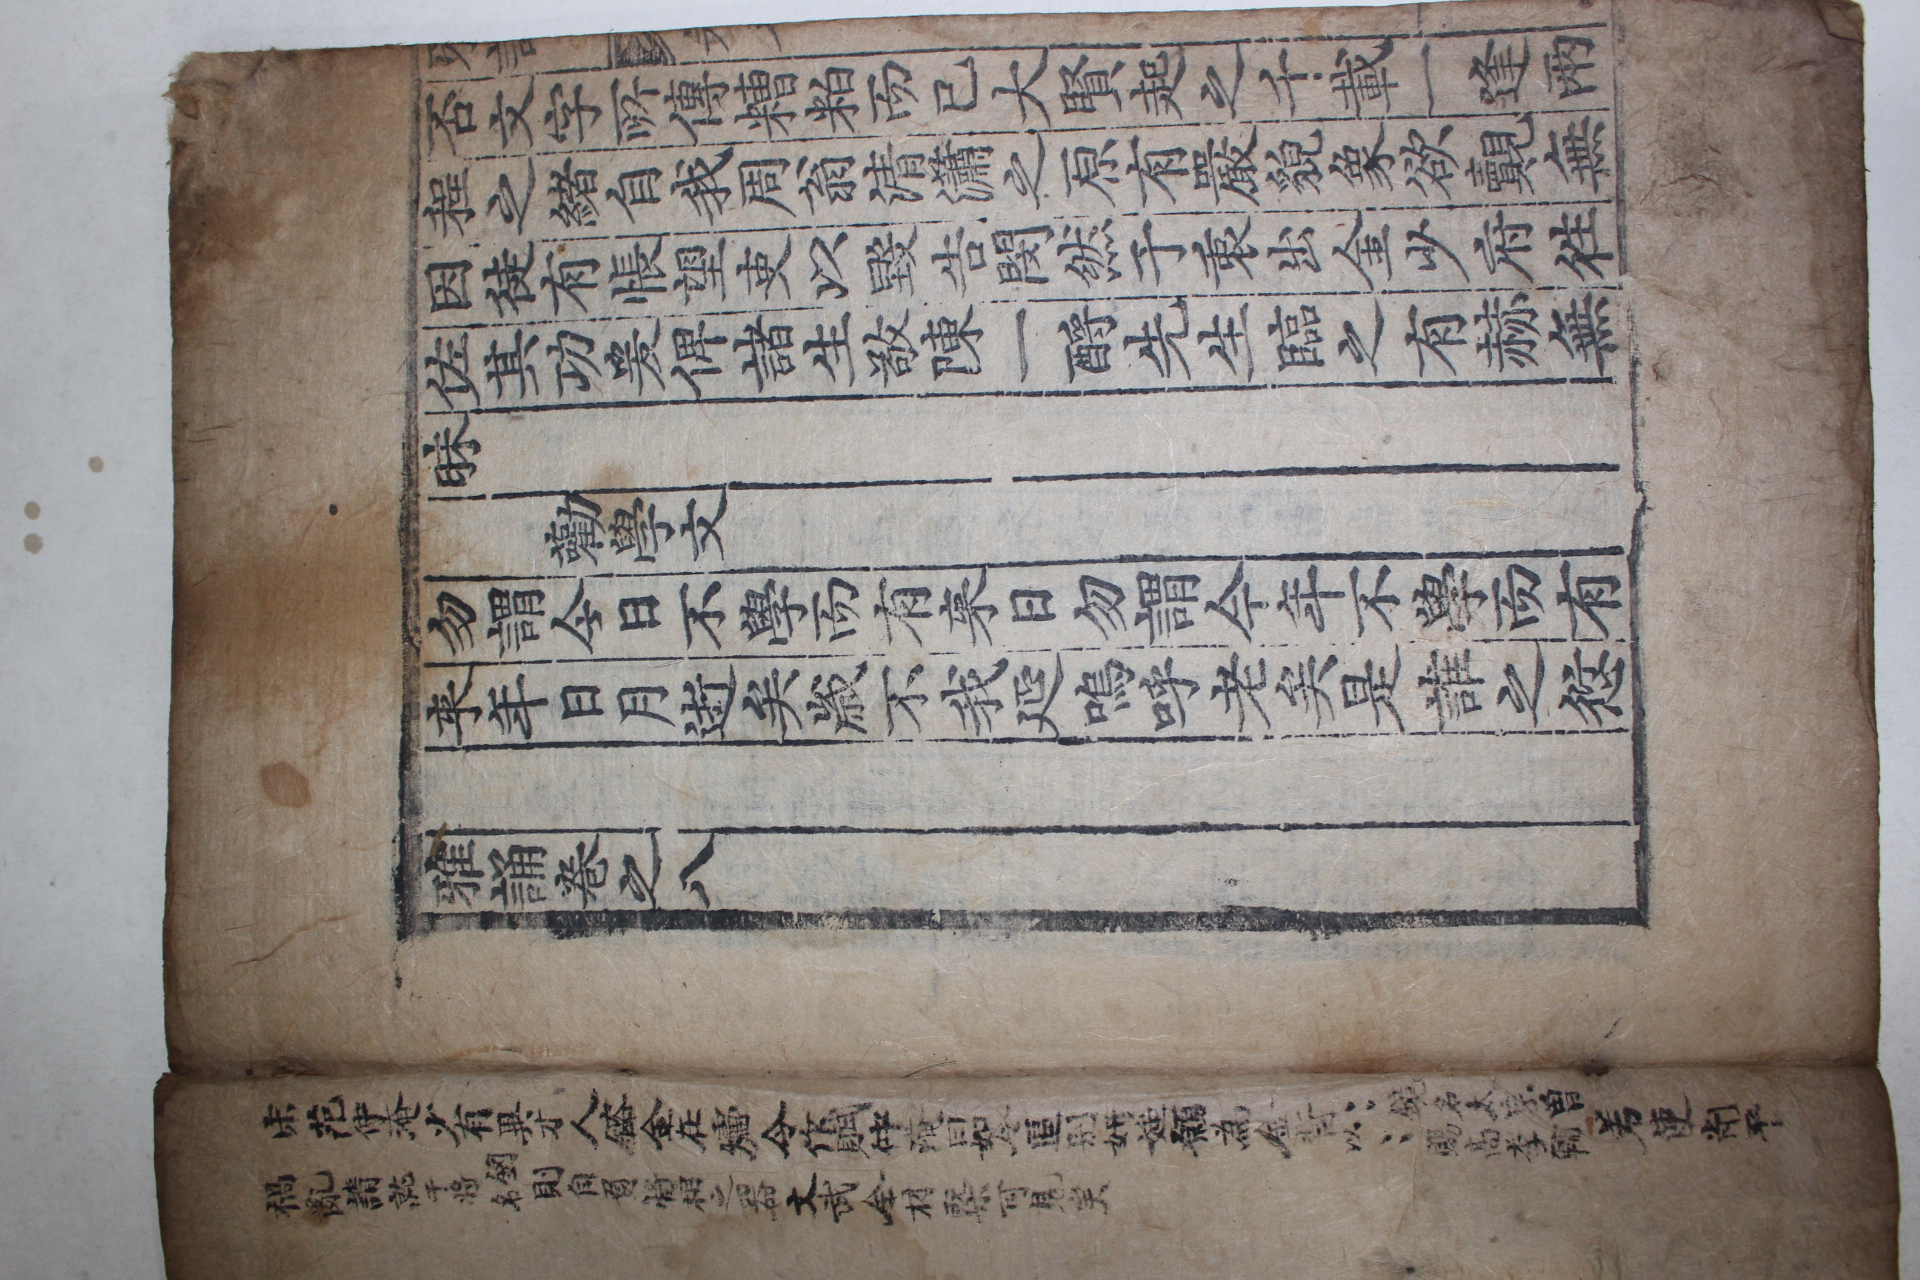 否文字所傳糟粕而已大賢起之千載一逢兩
程之緒自我周翁清瀟之原有嚴貌象欲覿無
因徒有悵望吏以毀告閔然于衷出金少府往
佐其功爰俾諸生敬陳一酹先生臨之有赫無
昧
勸學文
勿謂今日不學而有來日勿謂今年不學而有
來年日月逝矣歲不我延嗚呼老矣是誰之愆
雅誦卷之八
宋范仲淹少有異才人鎔金在爐令作賦仲淹曰如令區別妍媸願為金背
鏡名太宗曾
以賜高季輔
若使削平
禍亂請就干將劍名則自負將相之器文武全材槩可見矣